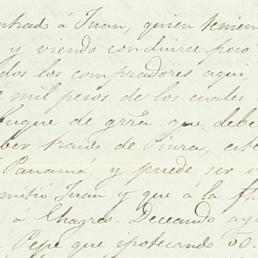 ntrado á Juan, quien tenien
y viendo conduirse poco
dos los compradores aqui,
mil pesos de los cuales
que de grra que debe
ber traido de Piura, este
Panamá, y puede ser i
mitió Juan y que á la fh
á Chagres. Deceando ay
Pepe que ipotecando 50.